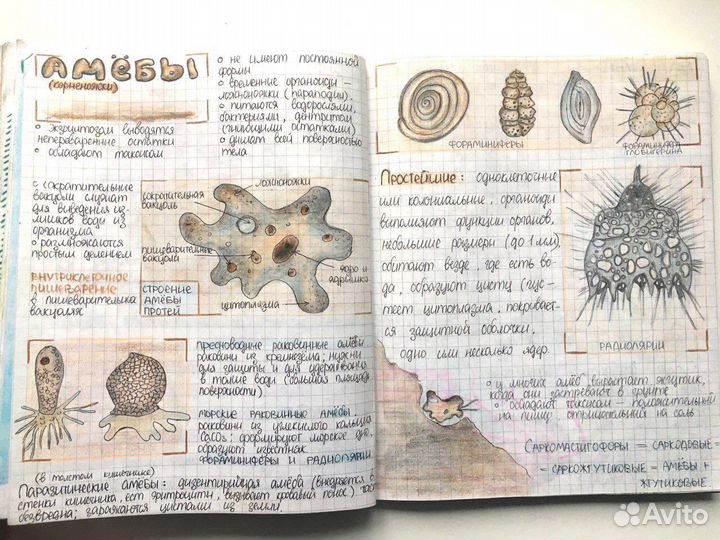 АМЁБЫ
(корненожки)
о экзоцитозом выводятся
непереваренные остатки
о обладают таксисом
о не имеют постоянной
формы
о временные органоиды –
ложноножки (параподии)
о питаются водорослями,
бактериями, дентритом
(гниющими остатками)
о дышат всей поверхностью
тела
о сократительные
вакуоли служат
для выведения из-
лишков воды из
организма
о размножаются
простым делением
внутриклеточное
пищеварение
в пищеварительных
вакуолях
ложноножки
сократительная
вакуоль
пищеварительная
вакуоль
ядро и
ядрышко
цитоплазма
строение
амёбы
протей
пресноводные раковинные амёбы,
раковины из кремнезема; нужны
для защиты и для удерживания
в толще воды (большая площадь
поверхности).
морские раковинные амёбы,
раковины из углекислого кальция
CaCO₃; формируют морское дно,
образуют известняк
фораминиферы и радиолярии
(в толстом кишечнике)
Паразитические амёбы: дизентирийная амёба (внедряется в
стенки кишечника, ест эритроциты, вызывает кровавый понос)
безвредна; заражаются цистами из земли.
фораминиферы
фораминифера
глобигерина
Простейшие: одноклеточные
или колониальные, органоиды
выполняют функции органов,
небольшие размеры (до 1 мм)
обитают везде, где есть во-
да, образуют цисты (гус-
теет цитоплазма, покрывает-
ся защитной оболочкой,
одно или несколько ядер.
радиолярии
о у многих амёб вырастает жгутик,
когда они застревают в грунте
о обладают таксисом – положительный
на пищу отрицательный на соль
Саркомастигофоры = саркодовые
= саркожгутиковые = амёбы +
жгутиковые
Avito